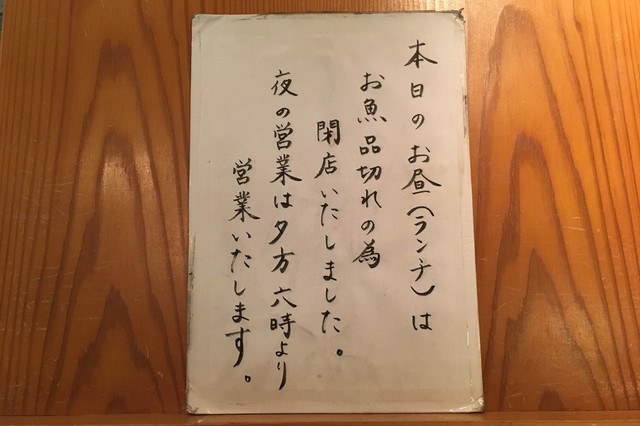 本日のお昼(ランチ)は
お魚品切れの為
閉店いたしました。
夜の営業は夕方六時より
営業いたします。